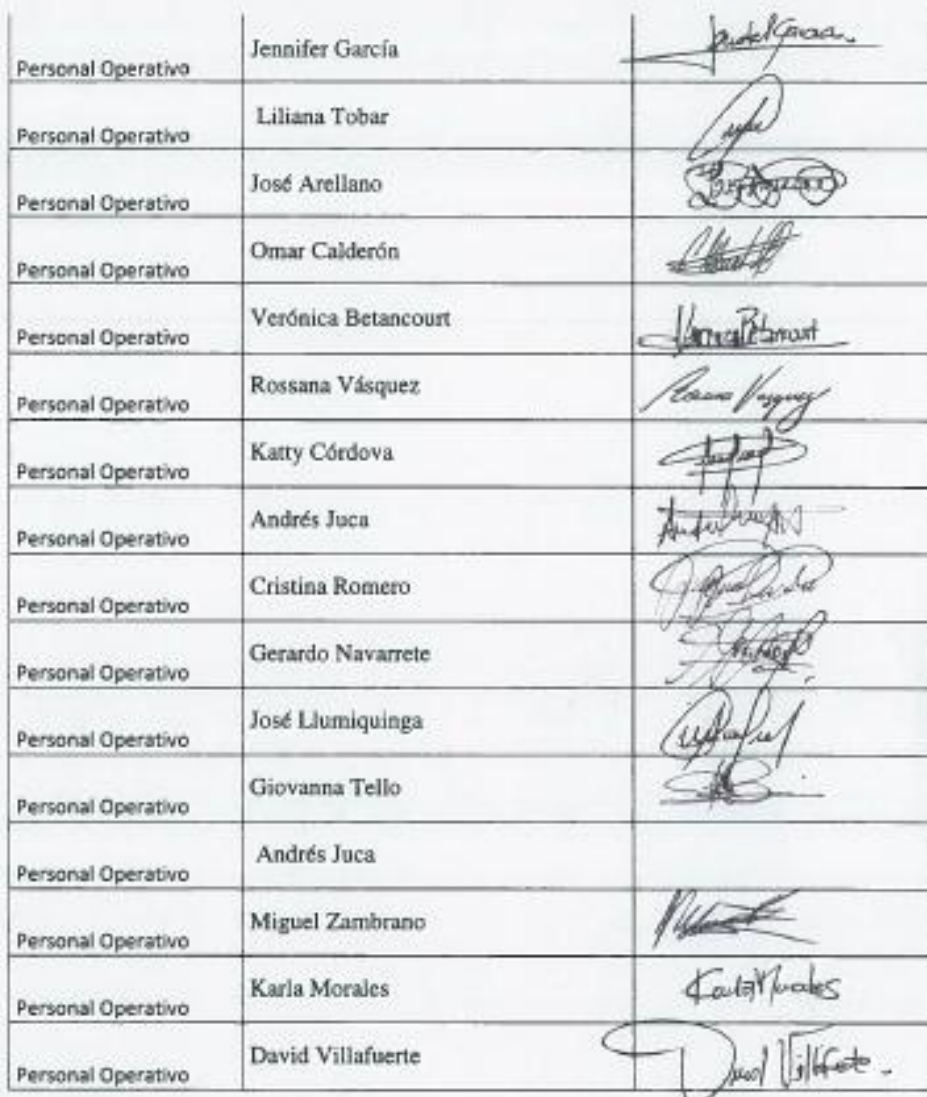 Personal Operativo Jennifer García
Personal Operativo Liliana Tobar
Personal Operativo José Arellano
Personal Operativo Omar Calderón
Personal Operativo Verónica Betancourt
Personal Operativo Rossana Vásquez Rossana Vasquez
Personal Operativo Katty Córdova
Personal Operativo Andrés Juca
Personal Operativo Cristina Romero
Personal Operativo Gerardo Navarrete
Personal Operativo José Llumiquinga
Personal Operativo Giovanna Tello
Personal Operativo Andrés Juca
Personal Operativo Miguel Zambrano
Personal Operativo Karla Morales Karla Morales
Personal Operativo David Villafuerte David Villafuerte